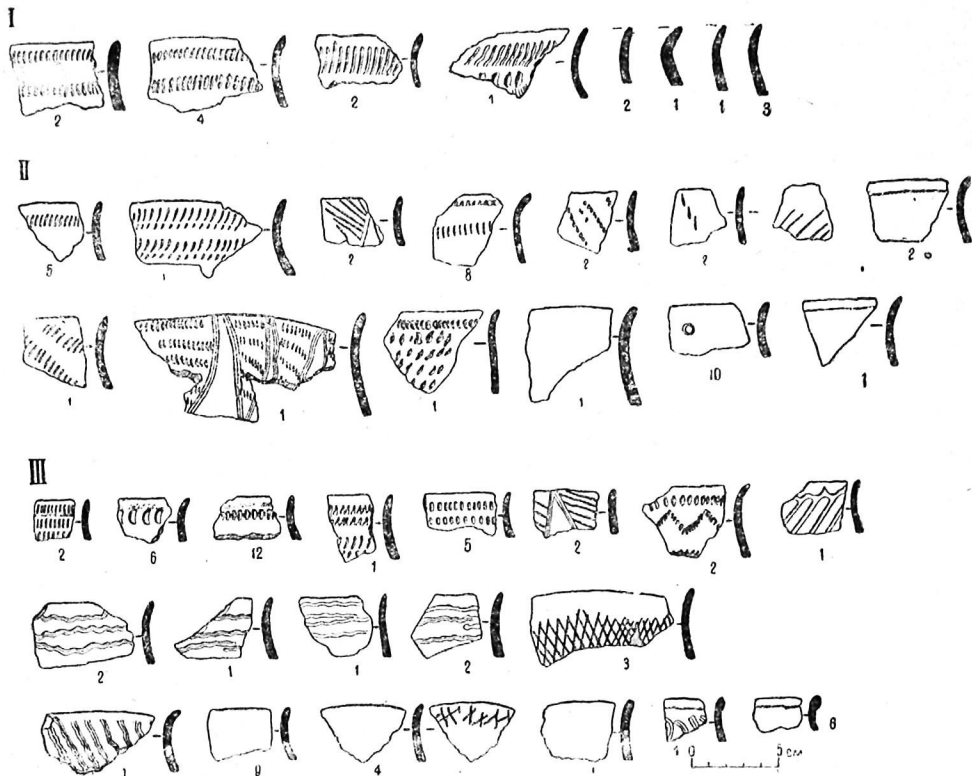 I
2 4 2 1 2 1 1 3
II
5 1 2 8 2 2 2
1 1 1 1 10 1
III
2 6 12 1 5 2 2 1
2 1 1 2 3
1 9 4 1 1 6
0 5 см